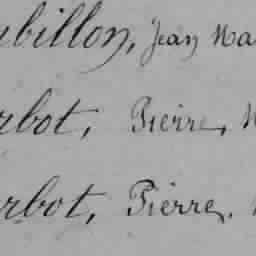 billon, Jean Ma
rbot, Pierre,
rbot, Pierre.